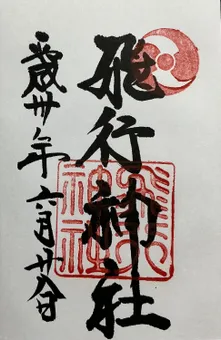 飛行神社
平成卅年六月廿八日
飛行
神社